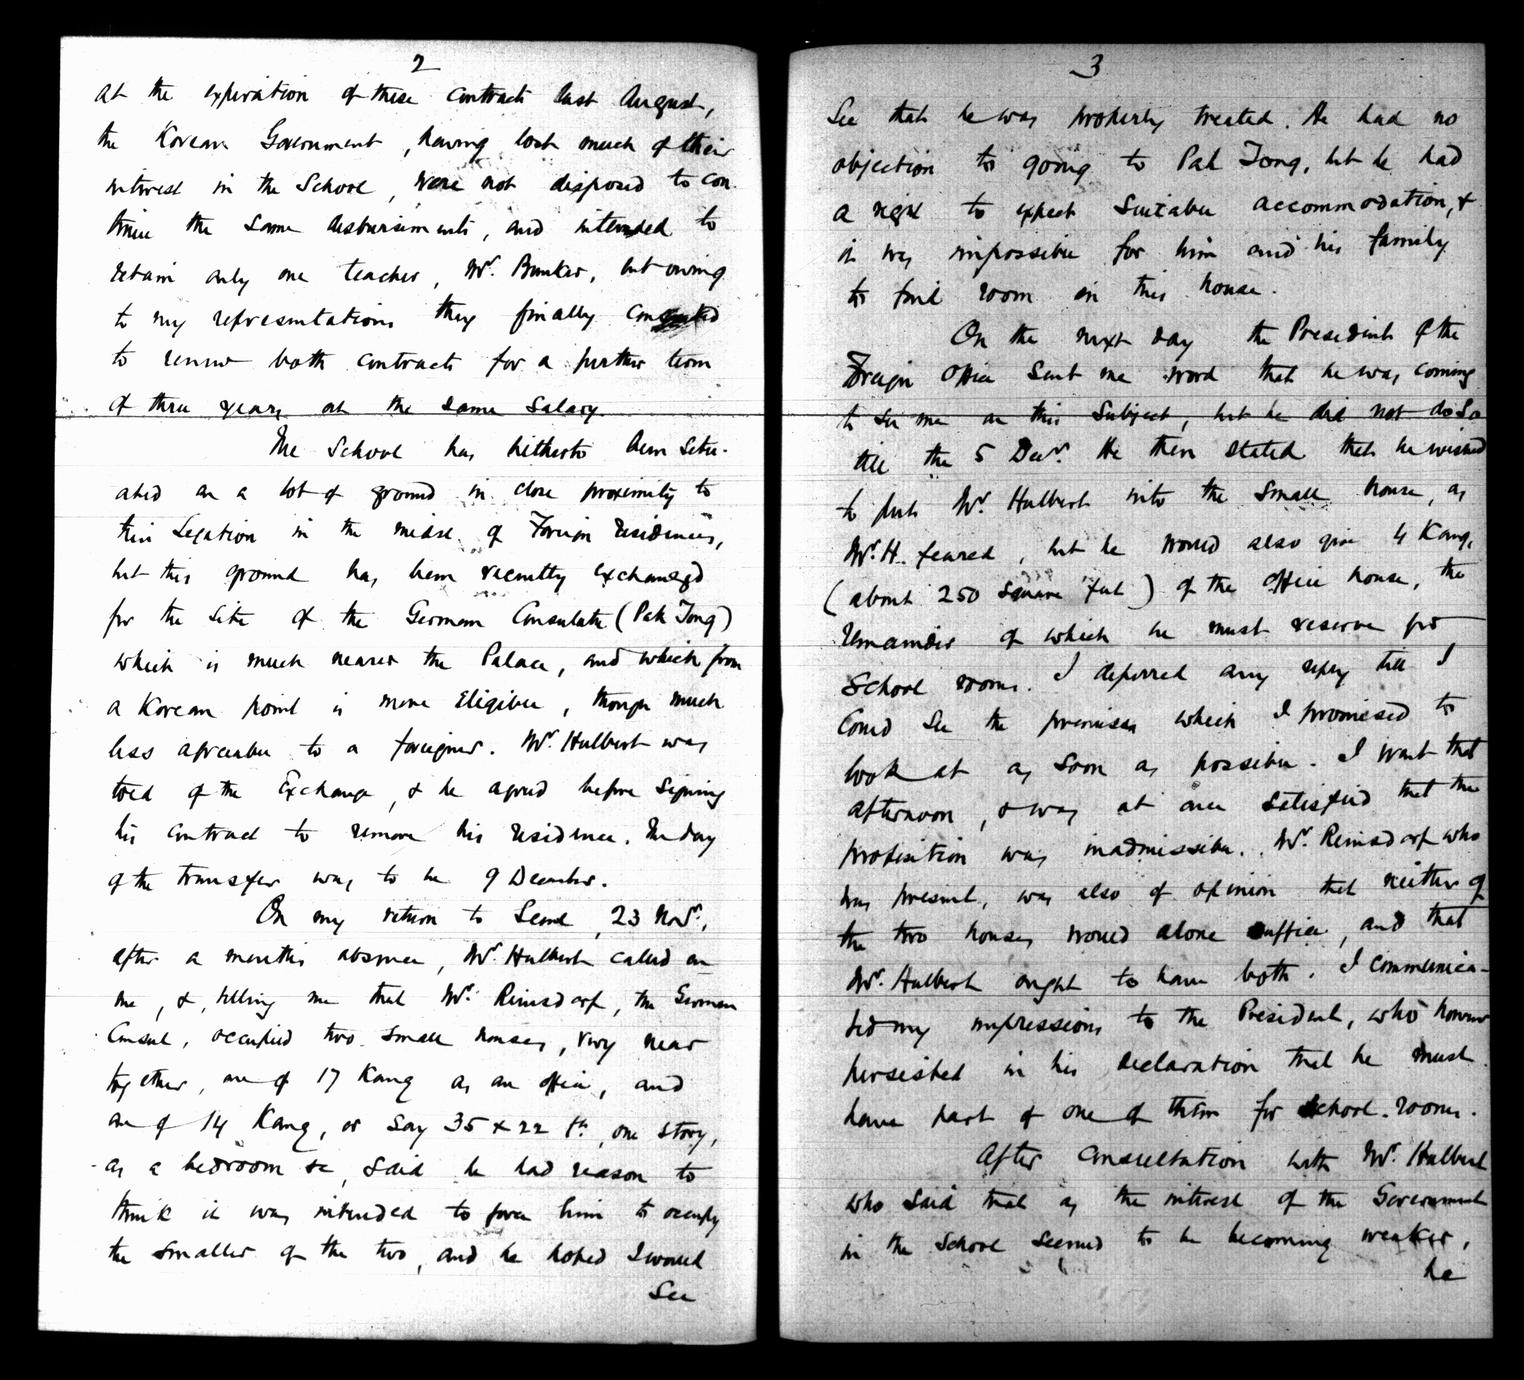 2
at the expiration of these contracts last August,
the Korean Government, having lost much of their
interest in the School, were not disposed to con-
tinue the same disbursements, and intended to
retain only one teacher, Mr. Bunker, but owing
to my representations they finally consented
to renew both contracts for a further term
of three years at the same salary.
The School has hitherto been situ-
ated on a lot of ground in close proximity to
this Legation in the midst of Foreign residences,
but this ground has been recently exchanged
for the site of the German Consulate (Pak Tong)
which is much nearer the Palace, and which from
a Korean point is more eligible, though much
less agreeable to a foreigner. Mr. Hulbert was
told of the Exchange, & he agreed before signing
his contract to remove his residence. The day
of the transfer was to be 9 December.
On my return to Seoul, 23 Novr.,
after a months absence, Mr. Hulbert called on
me, &, telling me that Mr. Reinsdorf, the German
Consul, occupied two small houses, very near
together, one of 17 Kang as an office, and
one of 14 Kang, or say 35 x 22 ft, one story,
as a bedroom &c, said he had reason to
think it was intended to force him to occupy
the smaller of the two, and he hoped I would
See
3
See that he was properly treated. He had no
objection to going to Pak Tong, but he had
a right to expect suitable accommodation, &
it was impossible for him and his family
to find room in this house.
On the next day the President of the
Foreign Office sent me word that he was coming
to see me on this subject, but he did not do so
till the 5 Decr. He then stated that he wished
to put Mr. Hulbert into the small house, as
Mr. H. feared, but he would also give 4 Kang,
(about 250 square feet) of the office house, the
remainder of which he must reserve for
School rooms. I deferred any reply till I
could see the premises which I promised to
look at as soon as possible. I went that
afternoon, & was at once satisfied that the
proposition was inadmissible. Mr. Reinsdorf who
was present, was also of opinion that neither of
the two houses would alone suffice, and that
Mr. Hulbert ought to have both. I communica-
ted my impressions to the President, who however
persisted in his declaration that he must
have part of one of them for school-rooms.
After consultation with Mr. Hulbert
who said that as the interest of the Government
in the School seemed to be becoming weaker,
he